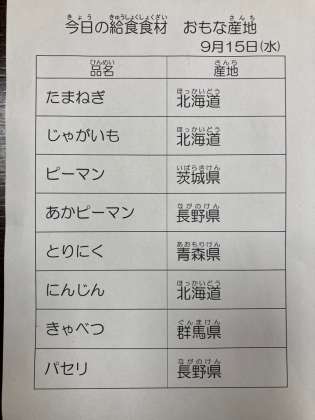 今日の給食食材 おもな産地
9月15日(水)
品名 産地
たまねぎ 北海道
じゃがいも 北海道
ピーマン 茨城県
あかピーマン 長野県
とりにく 青森県
にんじん 北海道
きゃべつ 群馬県
パセリ 長野県